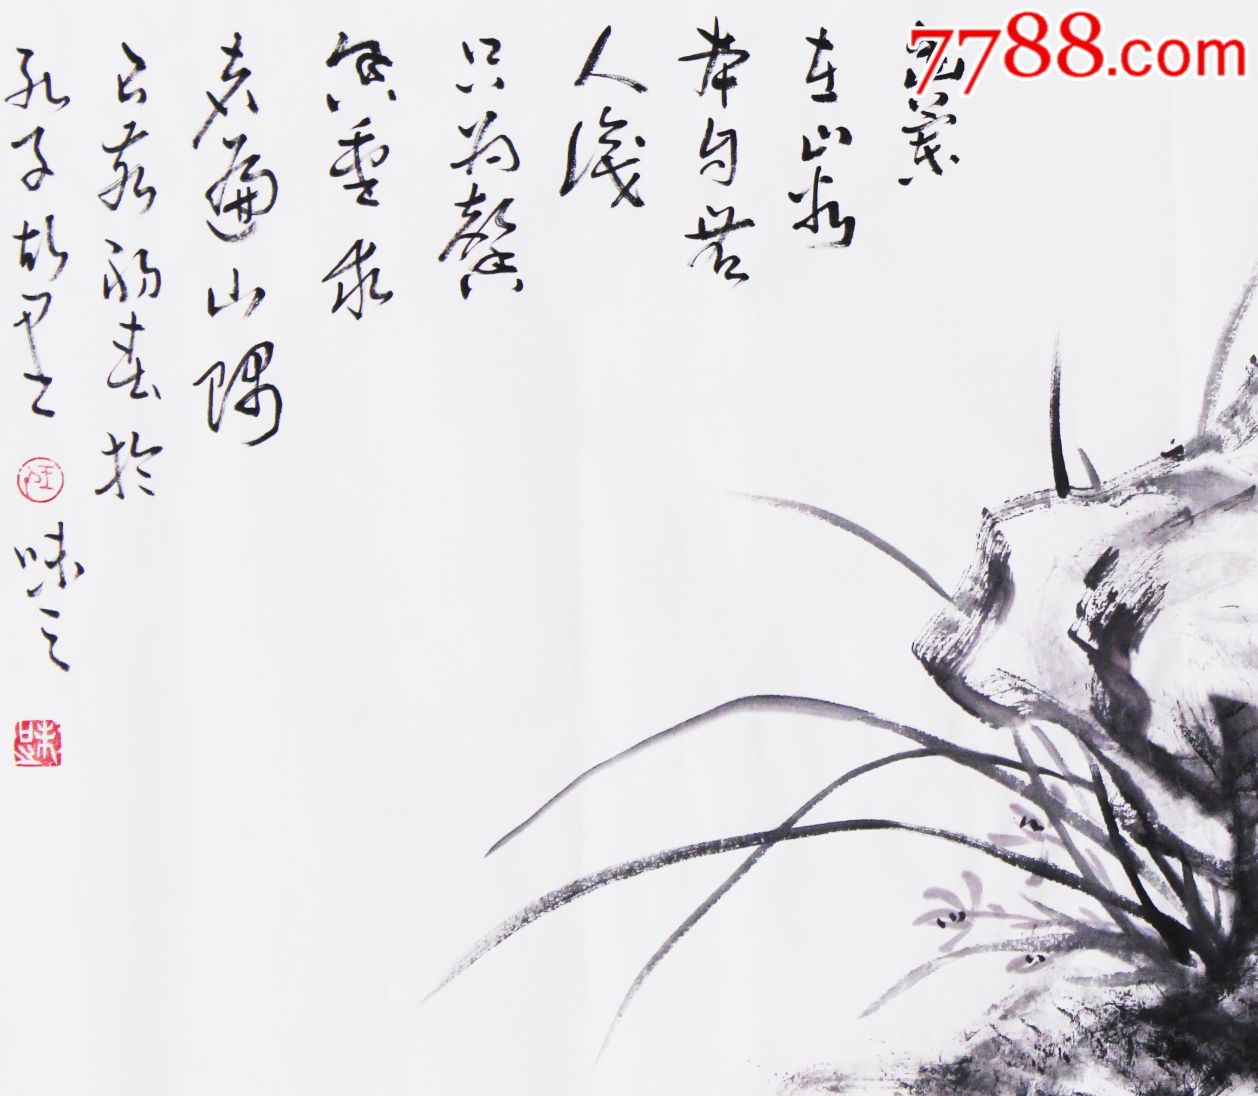 7788.com
幽蘭
在山谷
本自無
人識
只为馨
香重求
者遍山隅
己亥初春於
孔子故里 味之